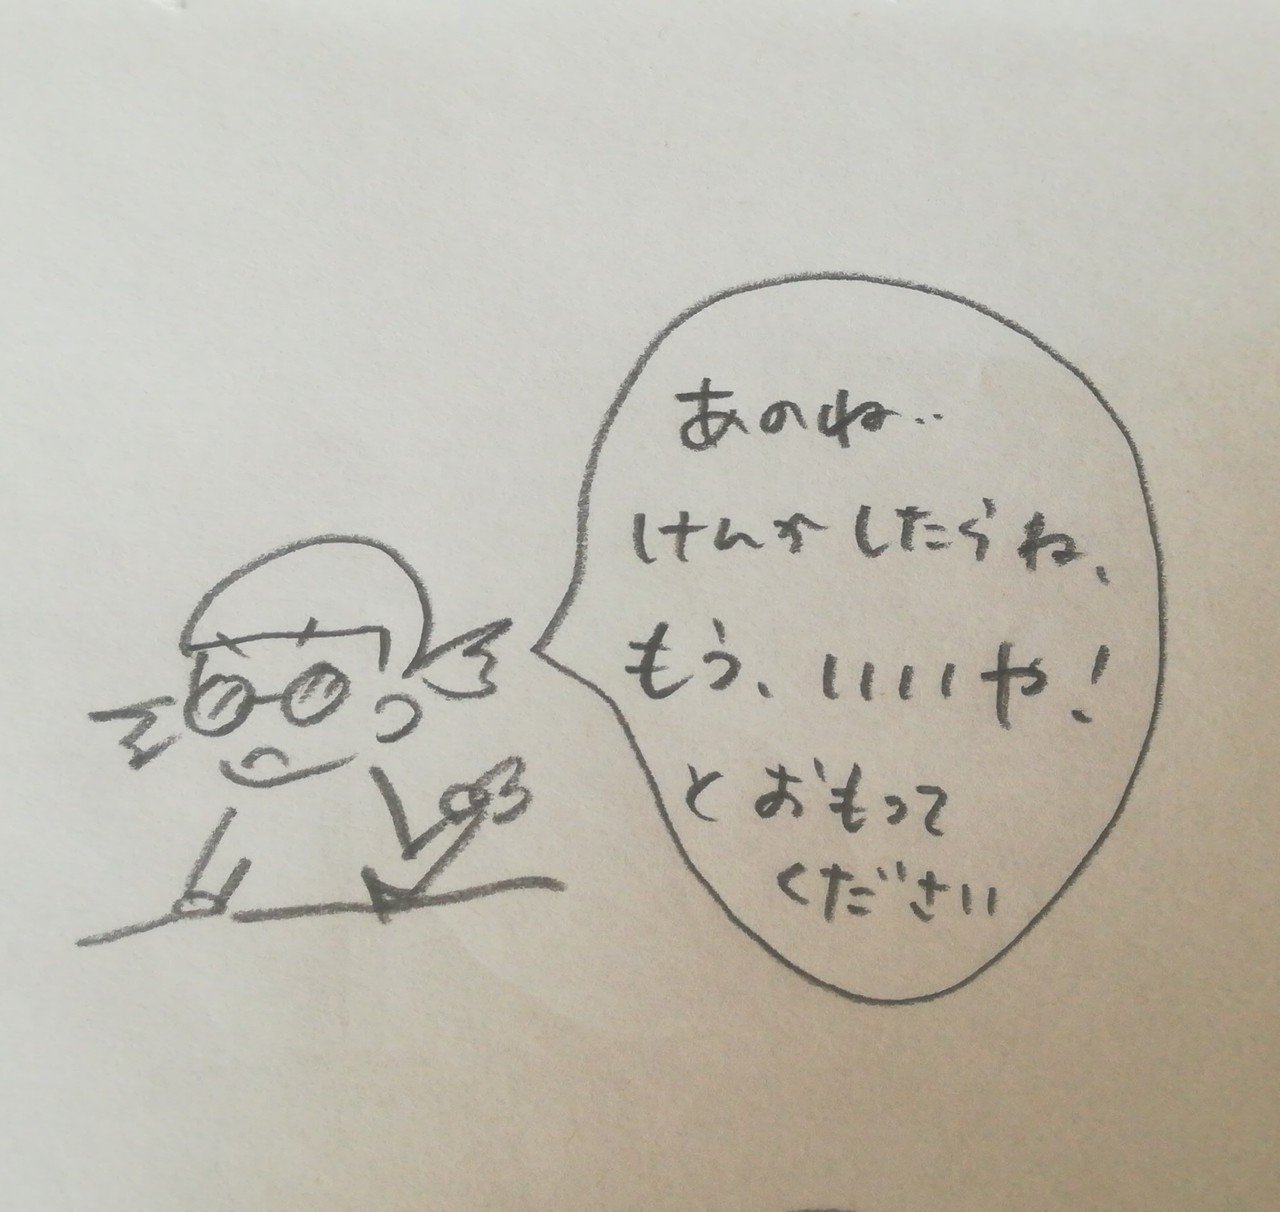 あのね‥
けんかしたらね、
もう、いいや!
とおもって
ください